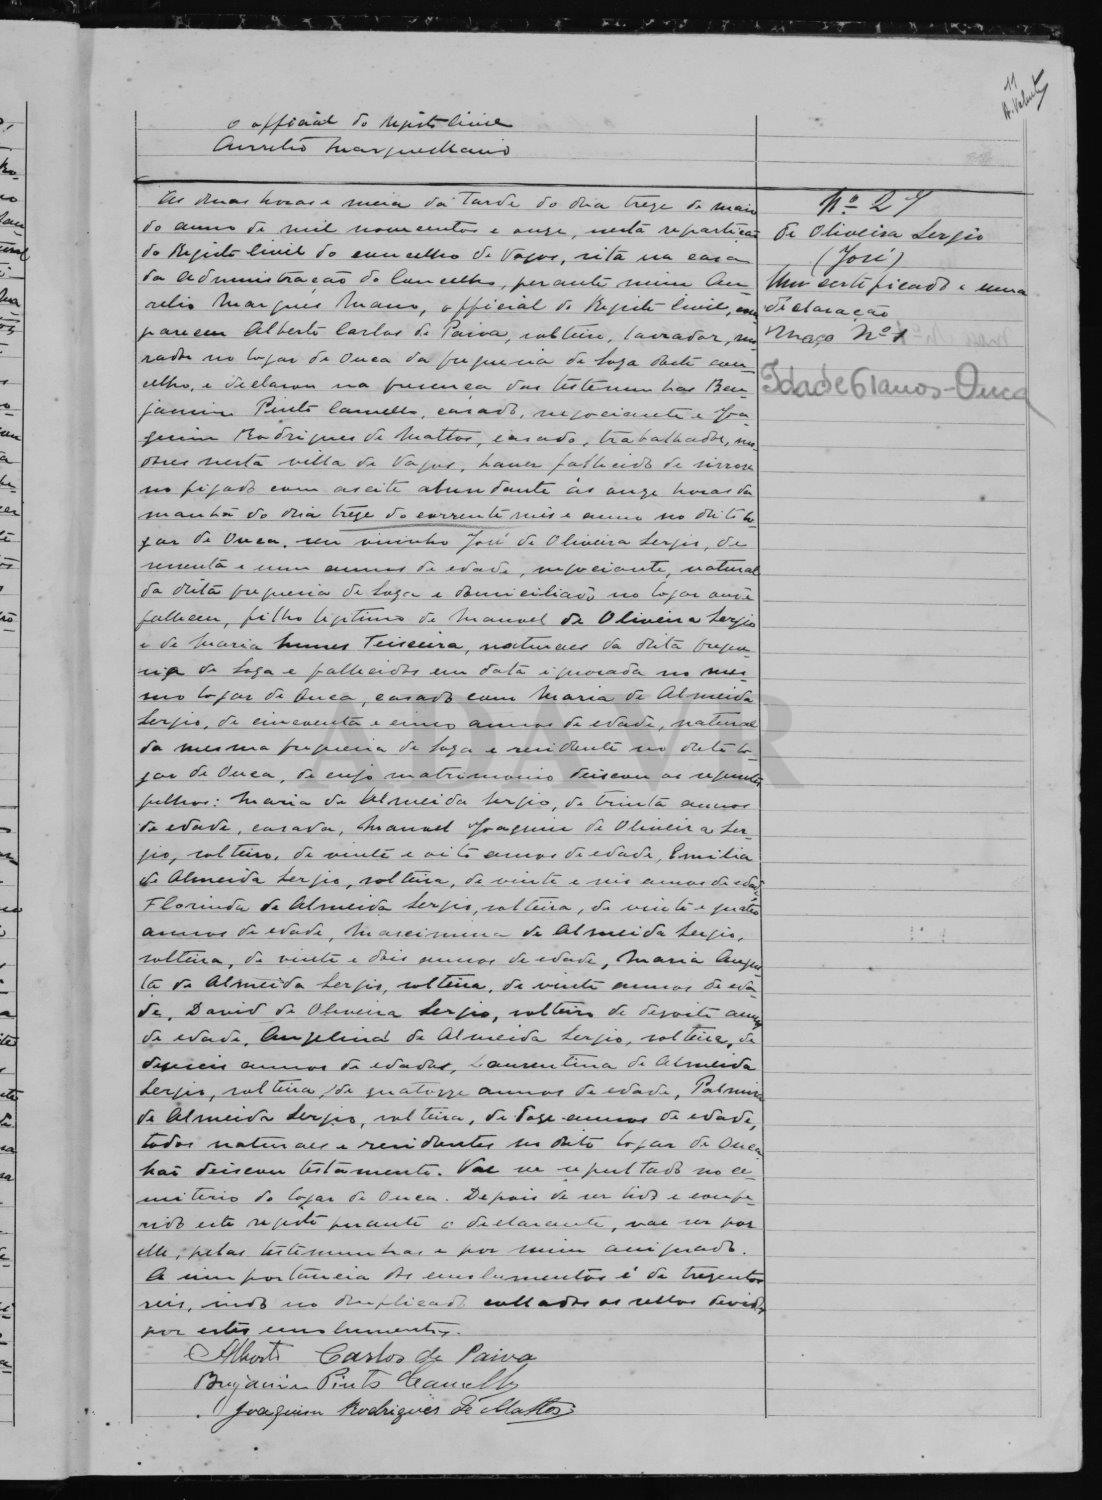 11
A. Valente
O official do Registo civil
Aurelio Marques Mano
Nº 27
de Oliveira Sergio
(José)
Um certificado e uma
declaração
Maço Nº 1
Idade 61 anos - Ouca
As duas horas e meia da tarde do dia treze de maio
do anno de mil novecentos e onze, nesta repartição
do Registo civil do concelho de Vagos, sita na casa
da Administração do Concelho, perante mim Au-
relio Marques Mano, official do Registo civil, com-
pareceu Alberto Carlos de Paiva, solteiro, lavrador, mo-
rador no logar de Ouca da freguesia de Soza deste con-
celho, e declarou na presença das testemunhas Ben-
jamim Pinto Camello, casado, negociante e Joa-
quim Rodrigues de Mattos, casado, trabalhador, mo-
dores nesta villa de Vagos, haver fallecido de cirrose
no figado com ascite abundante ás onze horas da
manhã do dia treze do corrente mês e anno no dito lo-
gar de Ouca, seu visinho José de Oliveira Sergio, de
sessenta e um annos de edade, negociante, natural
da dita freguesia de Soza e domiciliado no logar onde
falleceu, filho legitimo de Manuel de Oliveira Sergio
e de Maria Nunes Teixeira, naturaes da dita fregue-
sia de Soza e fallecidos em data ignorada no mes-
mo logar de Ouca, casado com Maria de Almeida
Sergio, de cincoenta e cinco annos de edade, natural
da mesma freguesia de Soza e residente no dito lo-
gar de Ouca, de cujo matrimonio deixou os seguintes
filhos: Maria de Almeida Sergio, de trinta annos
de edade, casada, Manuel Joaquim de Oliveira Ser-
gio, solteiro, de vinte e oito annos de edade, Emilia
de Almeida Sergio, solteira, de vinte e seis annos de edade,
Florinda de Almeida Sergio, solteira, de vinte e quatro
annos de edade, Marcimina de Almeida Sergio,
solteira, de vinte e dois annos de edade, Maria Augus-
ta de Almeida Sergio, solteira, de vinte annos de eda-
de, David de Oliveira Sergio, solteiro de desoito annos
de edade, Angelina de Almeida Sergio, solteira, de
deseseis annos de edade, Laurentina de Almeida
Sergio, solteira, de quatorze annos de edade, Palmira
de Almeida Sergio, solteira, de doze annos de edade,
todos naturaes e residentes no dito logar de Ouca.
Não deixou testamento. Vae ser sepultado no ce-
miterio do logar de Ouca. Depois de ser lido e confe-
rido este registo perante o declarante, vae ser por
elle, pelas testemunhas e por mim assignado.
A importancia dos emolumentos é de trezentos
reis, indo no duplicado collados os sellos devidos
por estes emolumentos.
Alberto Carlos de Paiva
Benjamim Pinto Camello
Joaquim Rodrigues de Mattos
ADAVR